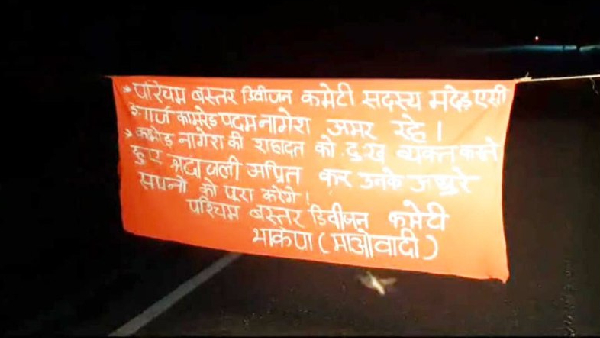 * पश्चिम बस्तर डिवीजन कमेटी सदस्य मद्देड़ एसी
इंचार्ज कामरेड पदम नागेश अमर रहे।
* कामरेड नागेश की शहादत को दुःख व्यक्त करते
हुए श्रद्धांजली अर्पित कर उनके अधुरे
सपनो को पुरा करेंगे।
पश्चिम बस्तर डिवीजन कमेटी
भाकपा (माओवादी)